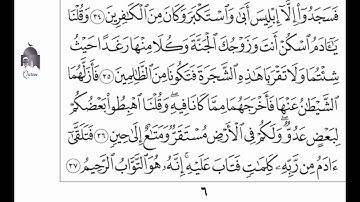 فَسَجَدُوٓا۟ إِلَّآ إِبْلِيسَ أَبَىٰ وَٱسْتَكْبَرَ وَكَانَ مِنَ ٱلْكَٰفِرِينَ ٣٤ وَقُلْنَا
يَٰٓـَٔادَمُ ٱسْكُنْ أَنتَ وَزَوْجُكَ ٱلْجَنَّةَ وَكُلَا مِنْهَا رَغَدًا حَيْثُ
شِئْتُمَا وَلَا تَقْرَبَا هَٰذِهِ ٱلشَّجَرَةَ فَتَكُونَا مِنَ ٱلظَّٰلِمِينَ ٣٥ فَأَزَلَّهُمَا
ٱلشَّيْطَٰنُ عَنْهَا فَأَخْرَجَهُمَا مِمَّا كَانَا فِيهِ ۖ وَقُلْنَا ٱهْبِطُوا۟ بَعْضُكُمْ
لِبَعْضٍ عَدُوٌّ ۖ وَلَكُمْ فِى ٱلْأَرْضِ مُسْتَقَرٌّ وَمَتَٰعٌ إِلَىٰ حِينٍ ٣٦ فَتَلَقَّىٰٓ
ءَادَمُ مِن رَّبِّهِۦ كَلِمَٰتٍ فَتَابَ عَلَيْهِ ۚ إِنَّهُۥ هُوَ ٱلتَّوَّابُ ٱلرَّحِيمُ ٣٧
٦